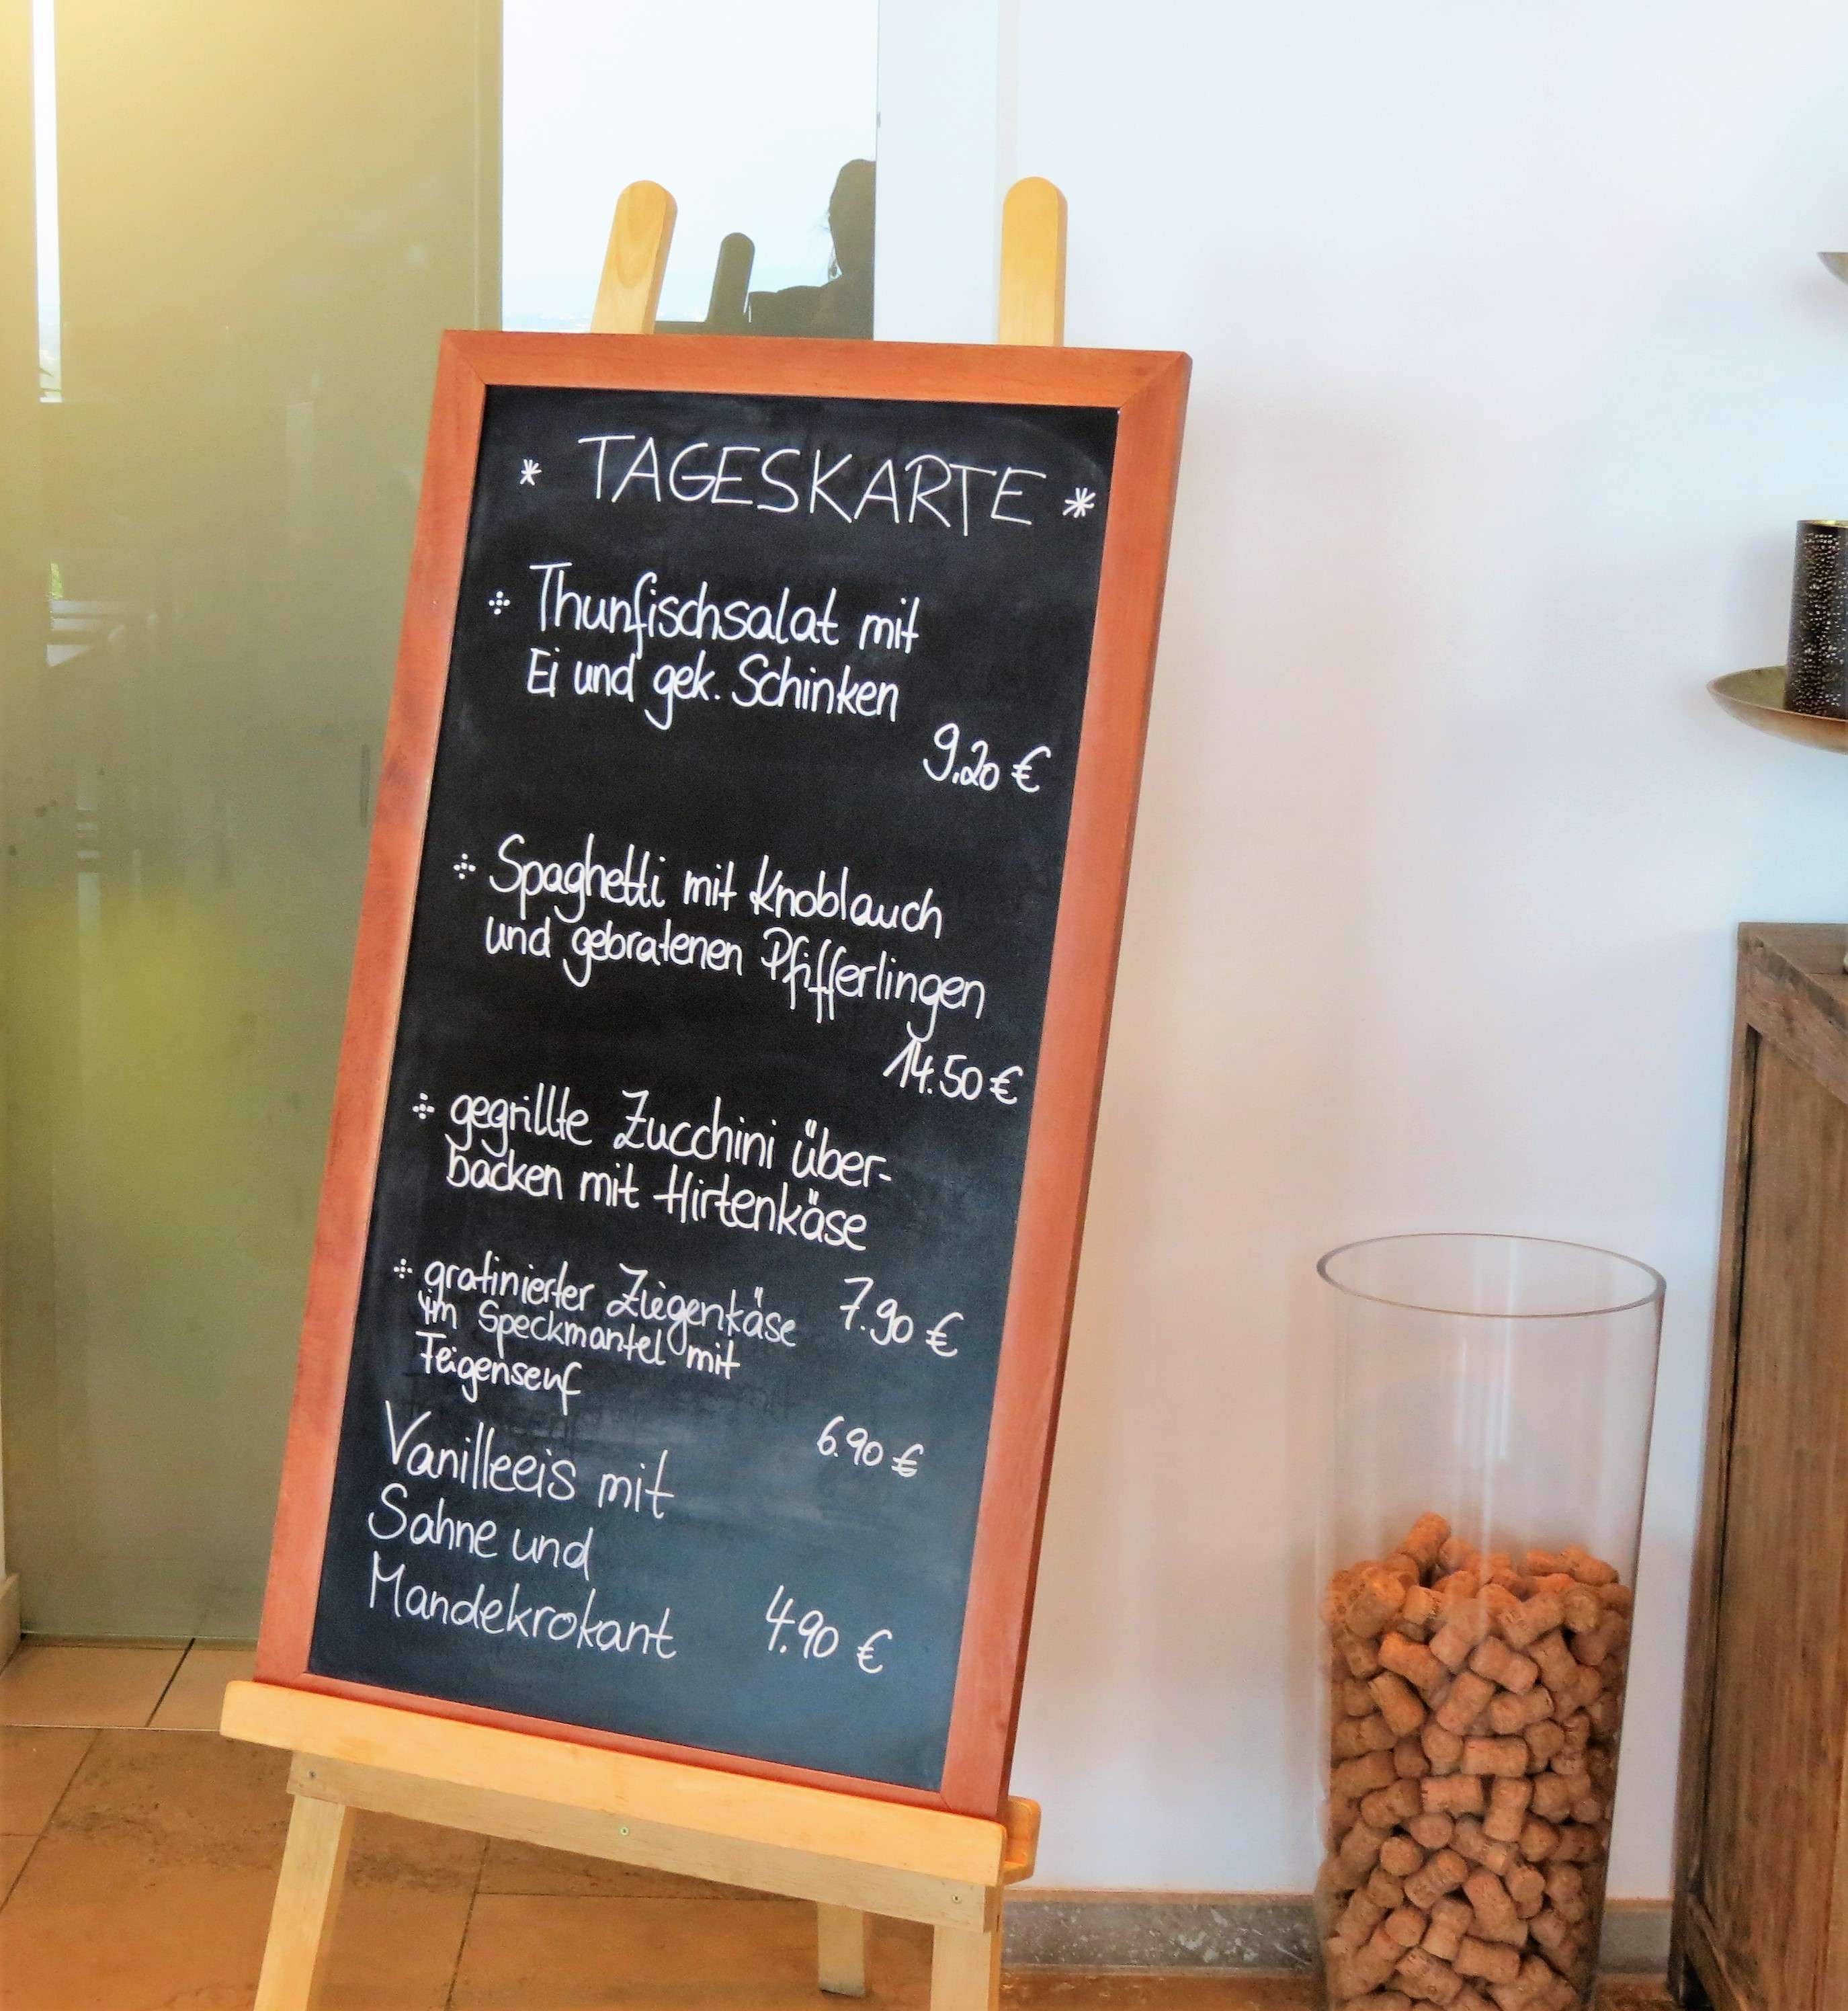 * TAGESKARTE *
Thunfischsalat mit
Ei und gek. Schinken
9.20 €
Spaghetti mit Knoblauch
und gebratenen Pfifferlingen
14.50 €
gegrillte Zucchini über-
backen mit Hirtenkäse
7.90 €
gratinierter Ziegenkäse
im Speckmantel mit
Feigensenf
6.90 €
Vanilleeis mit
Sahne und
Mandekrokant
4.90 €